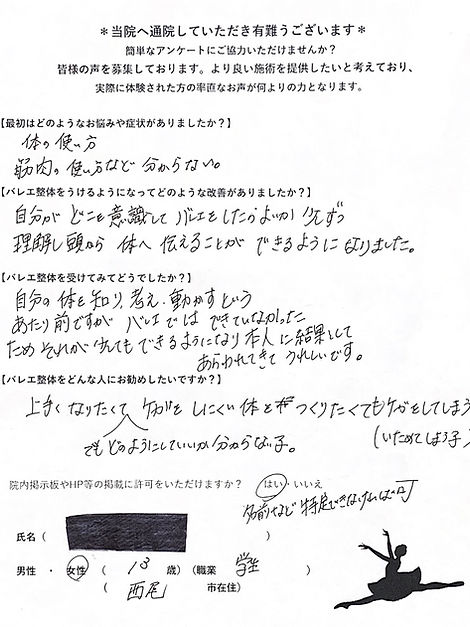 ＊当院へ通院していただき有難うございます＊
簡単なアンケートにご協力いただけませんか？
皆様の声を募集しております。より良い施術を提供したいと考えており、
実際に体験された方の率直なお声が何よりの力となります。
【最初はどのようなお悩みや症状がありましたか？】
体の使い方
筋肉の使い方など分からない。
【バレエ整体をうけるようになってどのような改善がありましたか？】
自分がどこを意識してバレエをしたらよいか少しずつ
理解し頭から体へ伝えることができるようになりました。
【バレエ整体を受けてみてどうでしたか？】
自分の体を知り、考え、動かすという
あたり前ですがバレエではできていなかった
ためそれが少しでもできるようになり本人に結果として
あらわれてきてうれしいです。
【バレエ整体をどんな人にお勧めしたいですか？】
上手くなりたくて ケガをしにくい体をつくりたくてもケガをしてしまう
でもどのようにしていいか分からない子。
（いためてしまう子）
院内掲示板やHP等の掲載に許可をいただけますか？ はい・いいえ
名前など特定できなければ可
氏名（
男性 ・ 女性 （ 13 歳）（職業 学生 ）
（ 西尾 市在住）